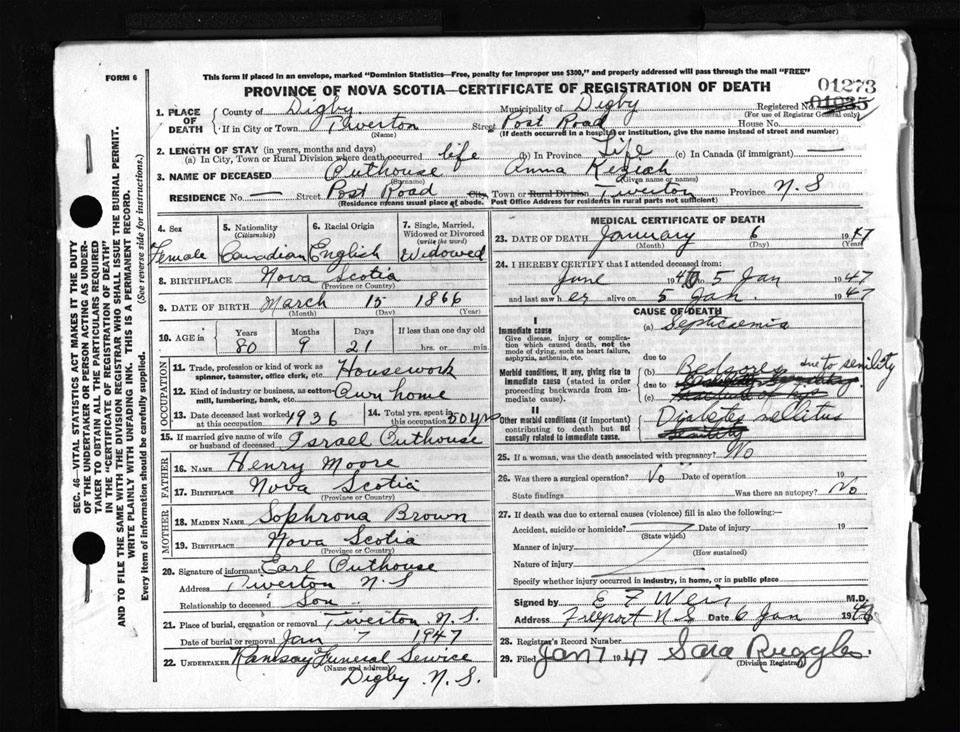 FORM 6
This form if placed in an envelope, marked "Dominion Statistics—Free, penalty for improper use $300," and properly addressed will pass through the mail "FREE"
01273
PROVINCE OF NOVA SCOTIA—CERTIFICATE OF REGISTRATION OF DEATH
1. PLACE OF DEATH County of Digby Municipality of Digby Registered No. 01035
(For use of Registrar General only)
If in City or Town Tiverton Street Post Road House No.
(Name) (If death occurred in a hospital or institution, give the name instead of street and number)
2. LENGTH OF STAY (in years, months and days)
(a) In City, Town or Rural Division where death occurred life (b) In Province Life (c) In Canada (if immigrant) —
3. NAME OF DECEASED Outhouse Anna Keziah
(Surname) (Given name or names)
RESIDENCE No. — Street Post Road City, Town or Rural Division Tiverton Province N.S
(Residence means usual place of abode. Post Office Address for residents in rural parts not sufficient)
4. Sex Female
5. Nationality (Citizenship) Canadian
6. Racial Origin English
7. Single, Married, Widowed or Divorced (write the word) Widowed
8. BIRTHPLACE Nova Scotia
(Province or Country)
9. DATE OF BIRTH March 15 1866
(Month) (Day) (Year)
10. AGE in Years 80 Months 9 Days 21 If less than one day old hrs. or min.
OCCUPATION
11. Trade, profession or kind of work as spinner, teamster, office clerk, etc. Housework
12. Kind of industry or business, as cotton-mill, lumbering, bank, etc. Own home
13. Date deceased last worked at this occupation 1936
14. Total yrs. spent in this occupation 50 yrs
15. If married give name of wife or husband of deceased Israel Outhouse
FATHER
16. NAME Henry Moore
17. BIRTHPLACE Nova Scotia
(Province or Country)
MOTHER
18. MAIDEN NAME Sophrona Brown
19. BIRTHPLACE Nova Scotia
(Province or Country)
20. Signature of informant Earl Outhouse
Address Tiverton N.S
Relationship to deceased Son
21. Place of burial, cremation or removal Tiverton, N.S.
Date of burial or removal Jan 7 1947
22. UNDERTAKER Ramsay Funeral Service
(Name and address)
Digby N.S.
MEDICAL CERTIFICATE OF DEATH
23. DATE OF DEATH January 6 1947
(Month) (Day) (Year)
24. I HEREBY CERTIFY that I attended deceased from:
June 1940 to 5 Jan 1947
and last saw her alive on 5 Jan. 1947
CAUSE OF DEATH
I
Immediate cause (a) Septicaemia
Give disease, injury or complication which caused death, not the mode of dying, such as heart failure, asphyxia, asthenia, etc.
due to
Morbid conditions, if any, giving rise to immediate cause (stated in order proceeding backwards from immediate cause). (b) Bedsores due to senility
due to
(c)
II
Other morbid conditions (if important) contributing to death but not causally related to immediate cause. Diabetes mellitus
Senility
25. If a woman, was the death associated with pregnancy? No
26. Was there a surgical operation? No Date of operation 19
State findings Was there an autopsy? No
27. If death was due to external causes (violence) fill in also the following:—
Accident, suicide or homicide? Date of injury 19
(State which)
Manner of injury
(How sustained)
Nature of injury
Specify whether injury occurred in industry, in home, or in public place
Signed by E F Weir M.D.
Address Freeport N S Date 6 Jan
28. Registrar's Record Number
29. Filed Jan 7 1947 Sara Ruggles.
(Division Registrar)
SEC. 46—VITAL STATISTICS ACT MAKES IT THE DUTY
OF THE UNDERTAKER OR PERSON ACTING AS UNDER-
TAKER TO OBTAIN ALL THE PARTICULARS REQUIRED
IN THE "CERTIFICATE OF REGISTRATION OF DEATH"
AND TO FILE THE SAME WITH THE DIVISION REGISTRAR WHO SHALL ISSUE THE BURIAL PERMIT.
WRITE PLAINLY WITH UNFADING INK. THIS IS A PERMANENT RECORD.
Every item of information should be carefully supplied. (See reverse side for instructions.)